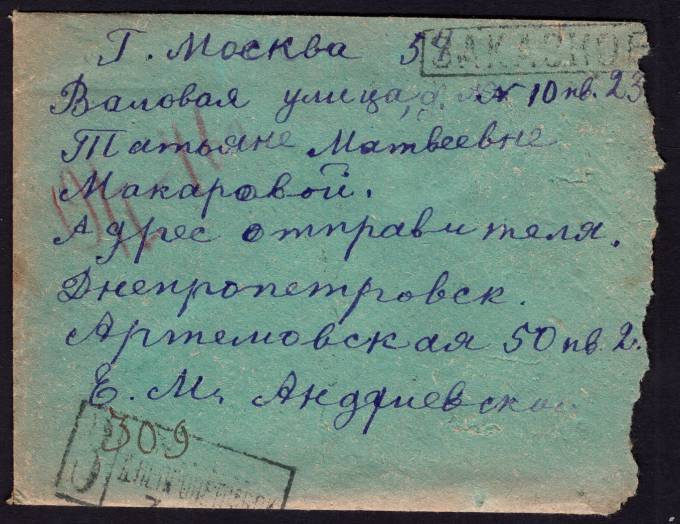 Г. Москва 54
ЗАКАЗНОЕ
Валовая улица, д. № 10 кв. 23
Татьяне Матвеевне
Макаровой.
Адрес отправителя.
Днепропетровск.
Артемовская 50 кв. 2.
Е. М. Андриевской
З
309